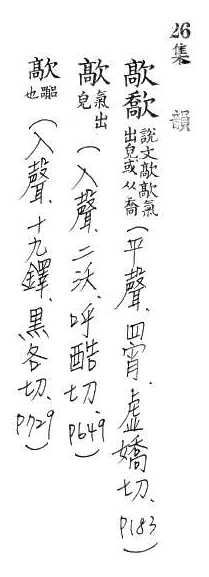 26集 韻
歊 說文歊歊氣出皃或从喬(平聲、四宵、虛嬌切、P183)
歊 氣出皃(入聲、二沃、呼酷切、P649)
歊 也(入聲、十九鐸、黑各切、P729)